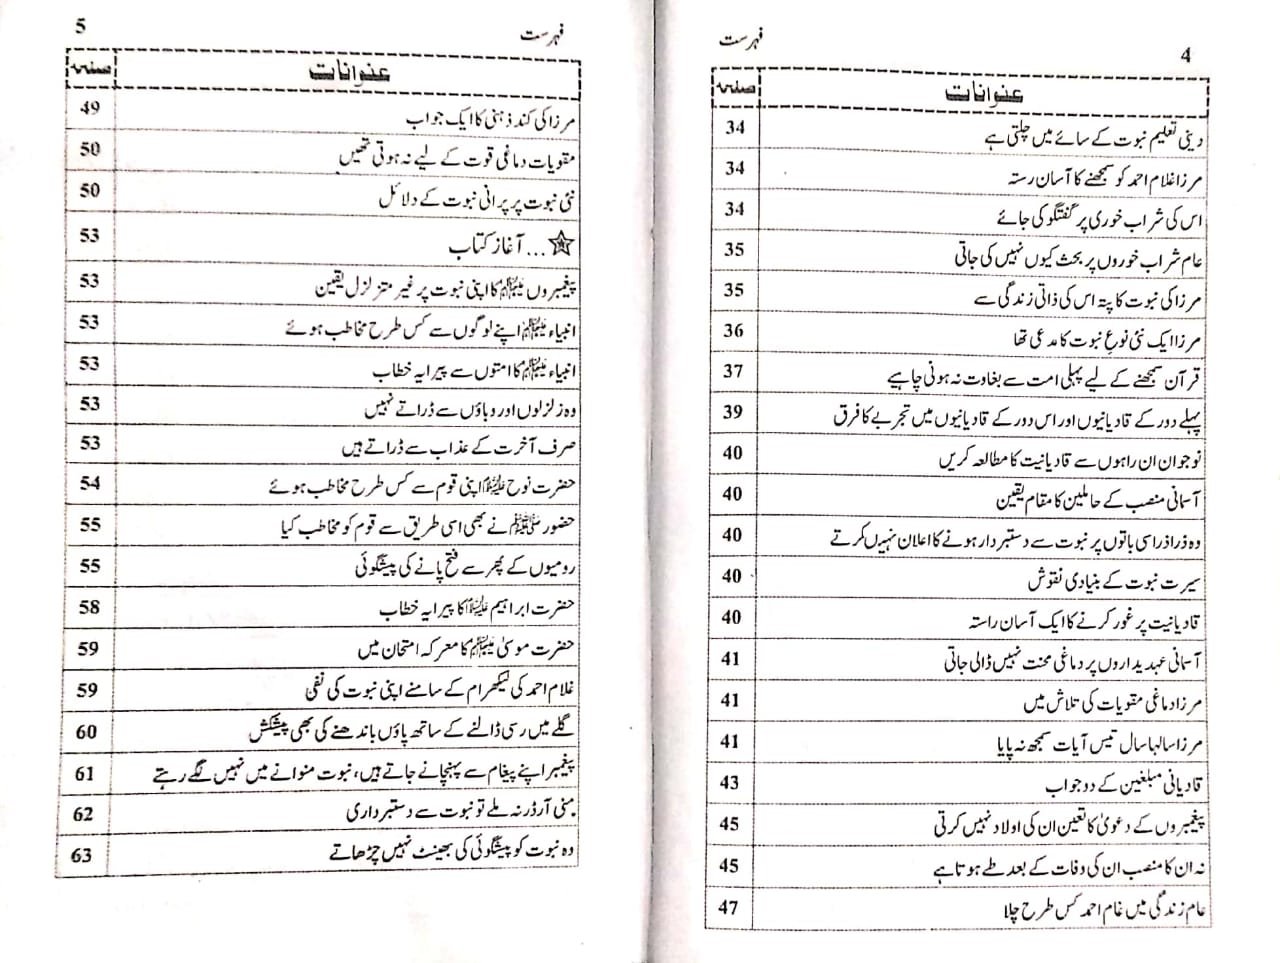 فہرست
4
صفحہ
عنوانات
34 دینی تعلیم نبوت کے سائے میں چلتی ہے
34 مرزا غلام احمد کو سمجھنے کا آسان رستہ
34 اس کی شراب خوری پر گفتگو کی جائے
35 عام شراب خوروں پر بحث کیوں نہیں کی جاتی
35 مرزا کی نبوت کا پتہ اس کی ذاتی زندگی سے
36 مرزا ایک نئی نوعِ نبوت کا مدعی تھا
37 قرآن سمجھنے کے لیے پہلی امت سے بغاوت نہ ہونی چاہیے
39 پہلے دور کے قادیانیوں اور اس دور کے قادیانیوں میں تجربے کا فرق
40 نوجوان ان راہوں سے قادیانیت کا مطالعہ کریں
40 آسمانی منصب کے حاملین کا مقام یقین
40 وہ ذرا ذرا سی باتوں پر نبوت سے دستبردار ہونے کا اعلان نہیں کرتے
40 سیرت نبوت کے بنیادی نقوش
40 قادیانیت پر غور کرنے کا ایک آسان راستہ
41 آسمانی عہدیداروں پر دماغی محنت نہیں ڈالی جاتی
41 مرزا دماغی مقویات کی تلاش میں
41 مرزا سالہا سال تیس آیات سمجھ نہ پایا
43 قادیانی مبلغین کے دو جواب
45 پیغمبروں کے دعویٰ کا تعین ان کی اولاد نہیں کرتی
45 نہ ان کا منصب ان کی وفات کے بعد طے ہوتا ہے
47 عام زندگی میں غام احمد کس طرح چلا
5
فہرست
صفحہ
عنوانات
49 مرزا کی کند ذہنی کا ایک جواب
50 مقویات دماغی قوت کے لیے نہ ہوتی تھیں
50 نئی نبوت پر پرانی نبوت کے دلائل
53 ... آغاز کتاب
53 پیغمبروں ﷺ کا اپنی نبوت پر غیر متزلزل یقین
53 انبیاء ﷺ اپنے لوگوں سے کس طرح مخاطب ہوئے
53 انبیاء ﷺ کا امتوں سے پیرایہ خطاب
53 وہ زلزلوں اور وباؤں سے ڈراتے نہیں
53 صرف آخرت کے عذاب سے ڈراتے ہیں
54 حضرت نوح علیہ السلام اپنی قوم سے کس طرح مخاطب ہوئے
55 حضور ﷺ نے بھی اسی طریق سے قوم کو مخاطب کیا
55 رومیوں کے پھر سے فتح پانے کی پیشگوئی
58 حضرت ابراہیم علیہ السلام کا پیرایہ خطاب
59 حضرت موسیٰ ﷺ کا معرکہ امتحان میں
59 غلام احمد کی لیکھرام کے سامنے اپنی نبوت کی نفی
60 گلے میں رسی ڈالنے کے ساتھ پاؤں باندھنے کی بھی پیشکش
61 پیغمبر اپنے پیغام سے پہنچانے جاتے ہیں، نبوت منوانے میں نہیں لگے رہتے
62 منی آرڈر نہ ملے تو نبوت سے دستبرداری
63 وہ نبوت کو پیشگوئی کی بھینٹ نہیں چڑھاتے